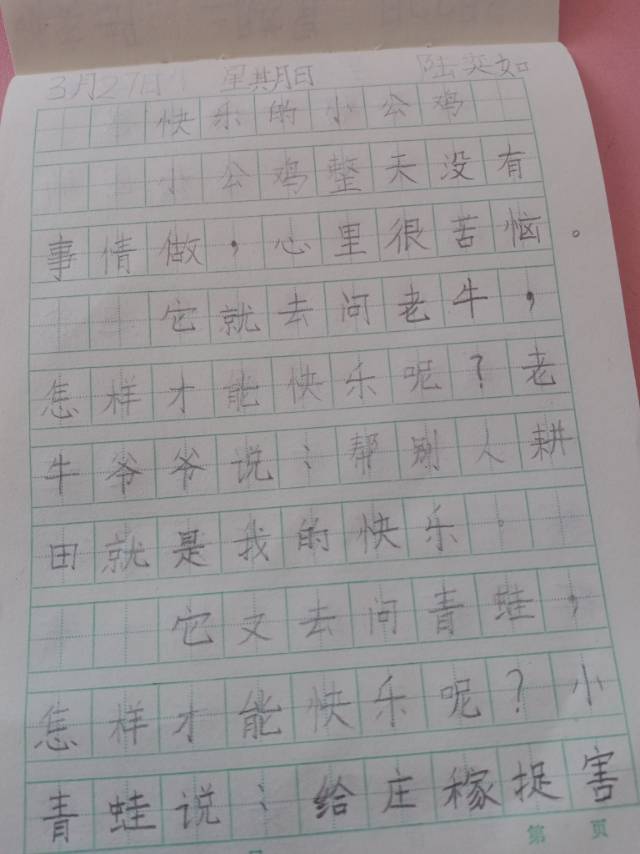 3月27日 星期日 陆奕如
快乐的小公鸡
小公鸡整天没有
事情做，心里很苦恼。
它就去问老牛，
怎样才能快乐呢？老
牛爷爷说：帮别人耕
田就是我的快乐。
它又去问青蛙，
怎样才能快乐呢？小
青蛙说：给庄稼捉害
第 页